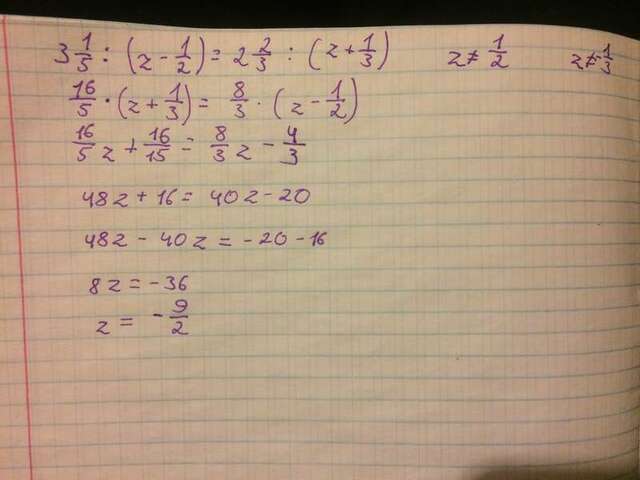 3 1/5 : (z - 1/2) = 2 2/3 : (z + 1/3) z ≠ 1/2 z ≠ -1/3
16/5 · (z + 1/3) = 8/3 · (z - 1/2)
16/5 z + 16/15 = 8/3 z - 4/3
48z + 16 = 40z - 20
48z - 40z = -20 - 16
8z = -36
z = - 9/2